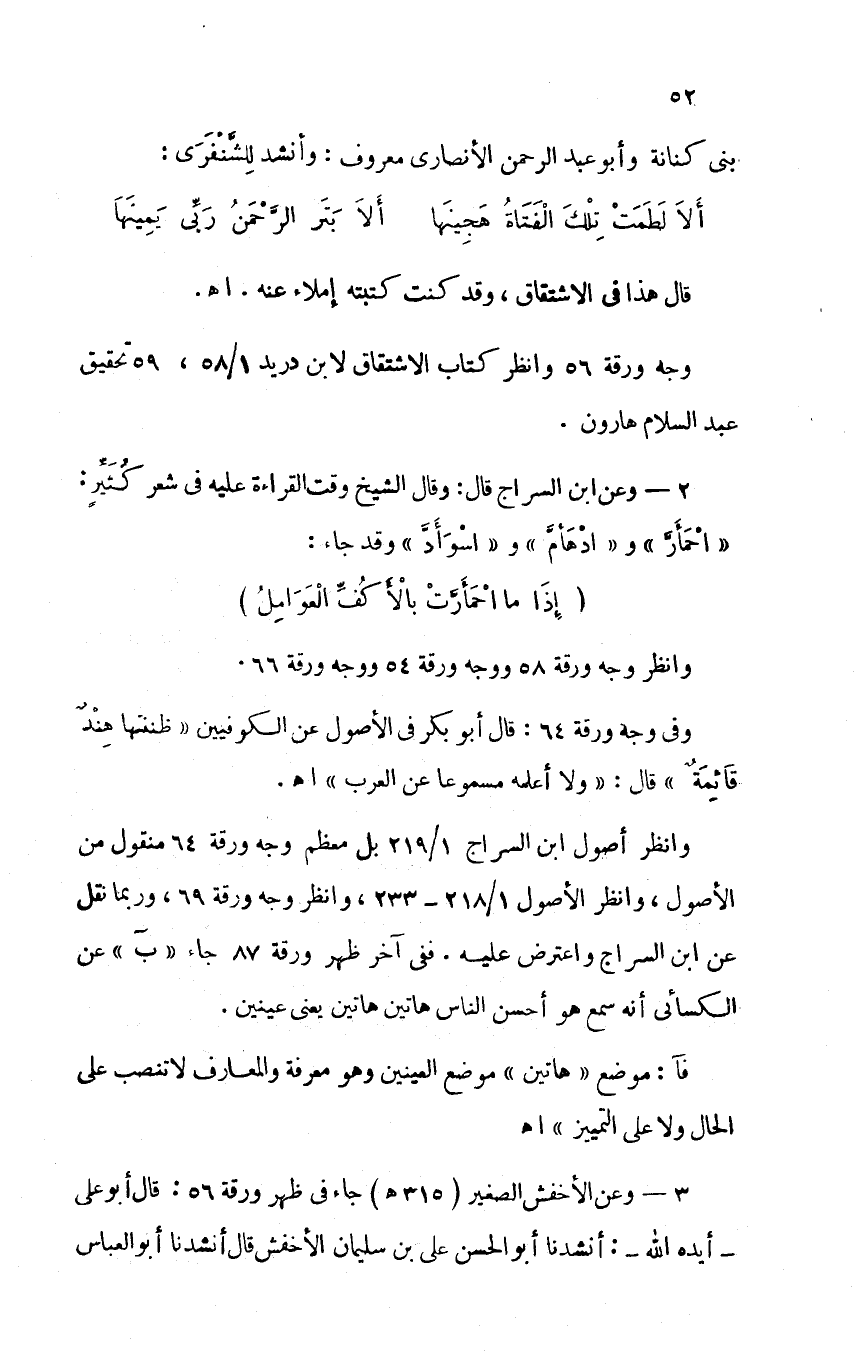 ٥٢
بنى كنانة وأبو عبد الرحمن الأنصارى معروف : وأنشد لِلشَّنْفَرَى :
أَلاَ لَطَمَتْ تِلْكَ الْفَتَاةُ هَجِينَهَا أَلاَ بَتَر الرَّحْمَنُ رَبِّى يَمِينَهَا
قال هذا فى الاشتقاق ، وقد كنت كتبته إملاء عنه . ا ه .
وجه ورقة ٥٦ وانظر كتاب الاشتقاق لابن دريد ٥٨/١ ، ٥٩ تحقيق
عبد السلام هارون .
٢ — وعن ابن السراج قال : وقال الشيخ وقت القراءة عليه فى شعر كُثَيِّرٍ :
« احْمَأَرَّ » و « ادْهَأمَّ » و « اسْوَأَدَّ » وقد جاء :
( إِذَا ما احْمَأَرَّتْ بالْأَكُفِّ الْعَوَامِلُ )
وانظر وجه ورقة ٥٨ ووجه ورقة ٥٤ ووجه ورقة ٦٦ .
وفى وجه ورقة ٦٤ : قال أبو بكر فى الأصول عن الكوفيين « ظننتها هِنْدٌ
قَائِمَةٌ » قال : « ولا أعلمه مسموعا عن العرب » ا ه .
وانظر أصول ابن السراج ٢١٩/١ بل معظم وجه ورقة ٦٤ منقول من
الأصول ، وانظر الأصول ٢١٨/١ – ٢٣٣ ، وانظر وجه ورقة ٦٩ ، وربما نقل
عن ابن السراج واعترض عليه . ففى آخر ظهر ورقة ٨٧ جاء « بَ » عن
الكسائى أنه سمع هو أحسن الناس هاتين هاتين يعنى عينين .
فآ : موضع « هاتين » موضع العينين وهو معرفة والمعارف لا تنصب على
الحال ولا على التمييز » ا ه
٣ — وعن الأخفش الصغير ( ٣١٥ ه ) جاء فى ظهر ورقة ٥٦ : قال أبو على
– أيده الله – : أنشدنا أبو الحسن على بن سليمان الأخفش قال أنشدنا أبو العباس